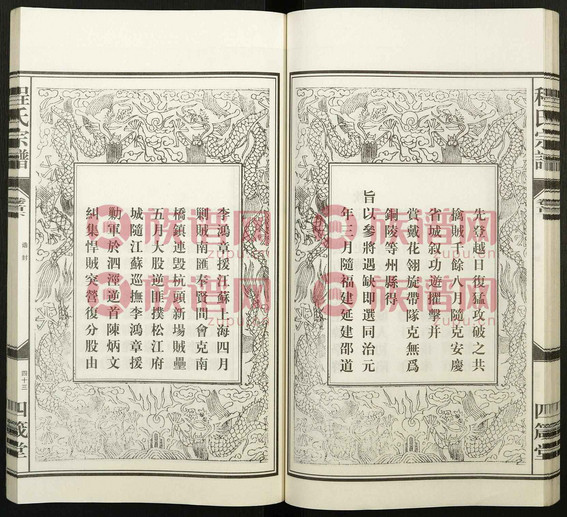 先登越日復猛攻破之共
擒賊千餘八月隨克安慶
省城叙功遊擢擊并
賞戴花翎旋帶隊克無為
銅陵等州縣得
旨以參將遇缺即選同治元
年三月隨福建延建邵道
李鴻章援江蘇上海四月
剿賊南匯奉賢間會克南
橋鎮連毀杭頭新場賊壘
五月大股逆匪撲松江府
城隨江蘇巡撫李鴻章援
勦軍於泗涇逆首陳炳文
糾集悍賊突營復分股由
程氏宗譜
四十三
四箴堂
程氏宗譜
四箴堂
族譜网
zupu.cn
族譜网
zupu.cn
族譜网
zupu.cn
族譜网
zupu.cn